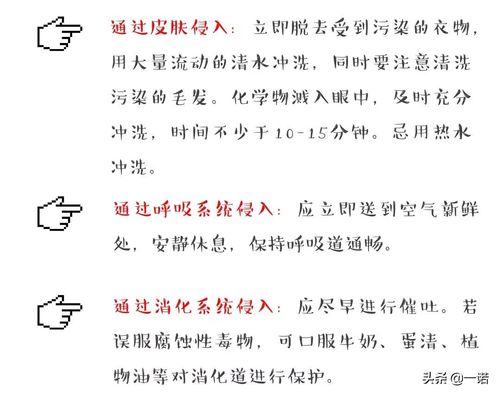 通过皮肤侵入：立即脱去受到污染的衣物，
用大量流动的清水冲洗，同时要注意清洗
污染的毛发。化学物溅入眼中，及时充分
冲洗，时间不少于10-15分钟。忌用热水
冲洗。
通过呼吸系统侵入：应立即送到空气新鲜
处，安静休息，保持呼吸道通畅。
通过消化系统侵入：应尽早进行催吐。若
误服腐蚀性毒物，可口服牛奶、蛋清、植
物油等对消化道进行保护。
头条 @一诺